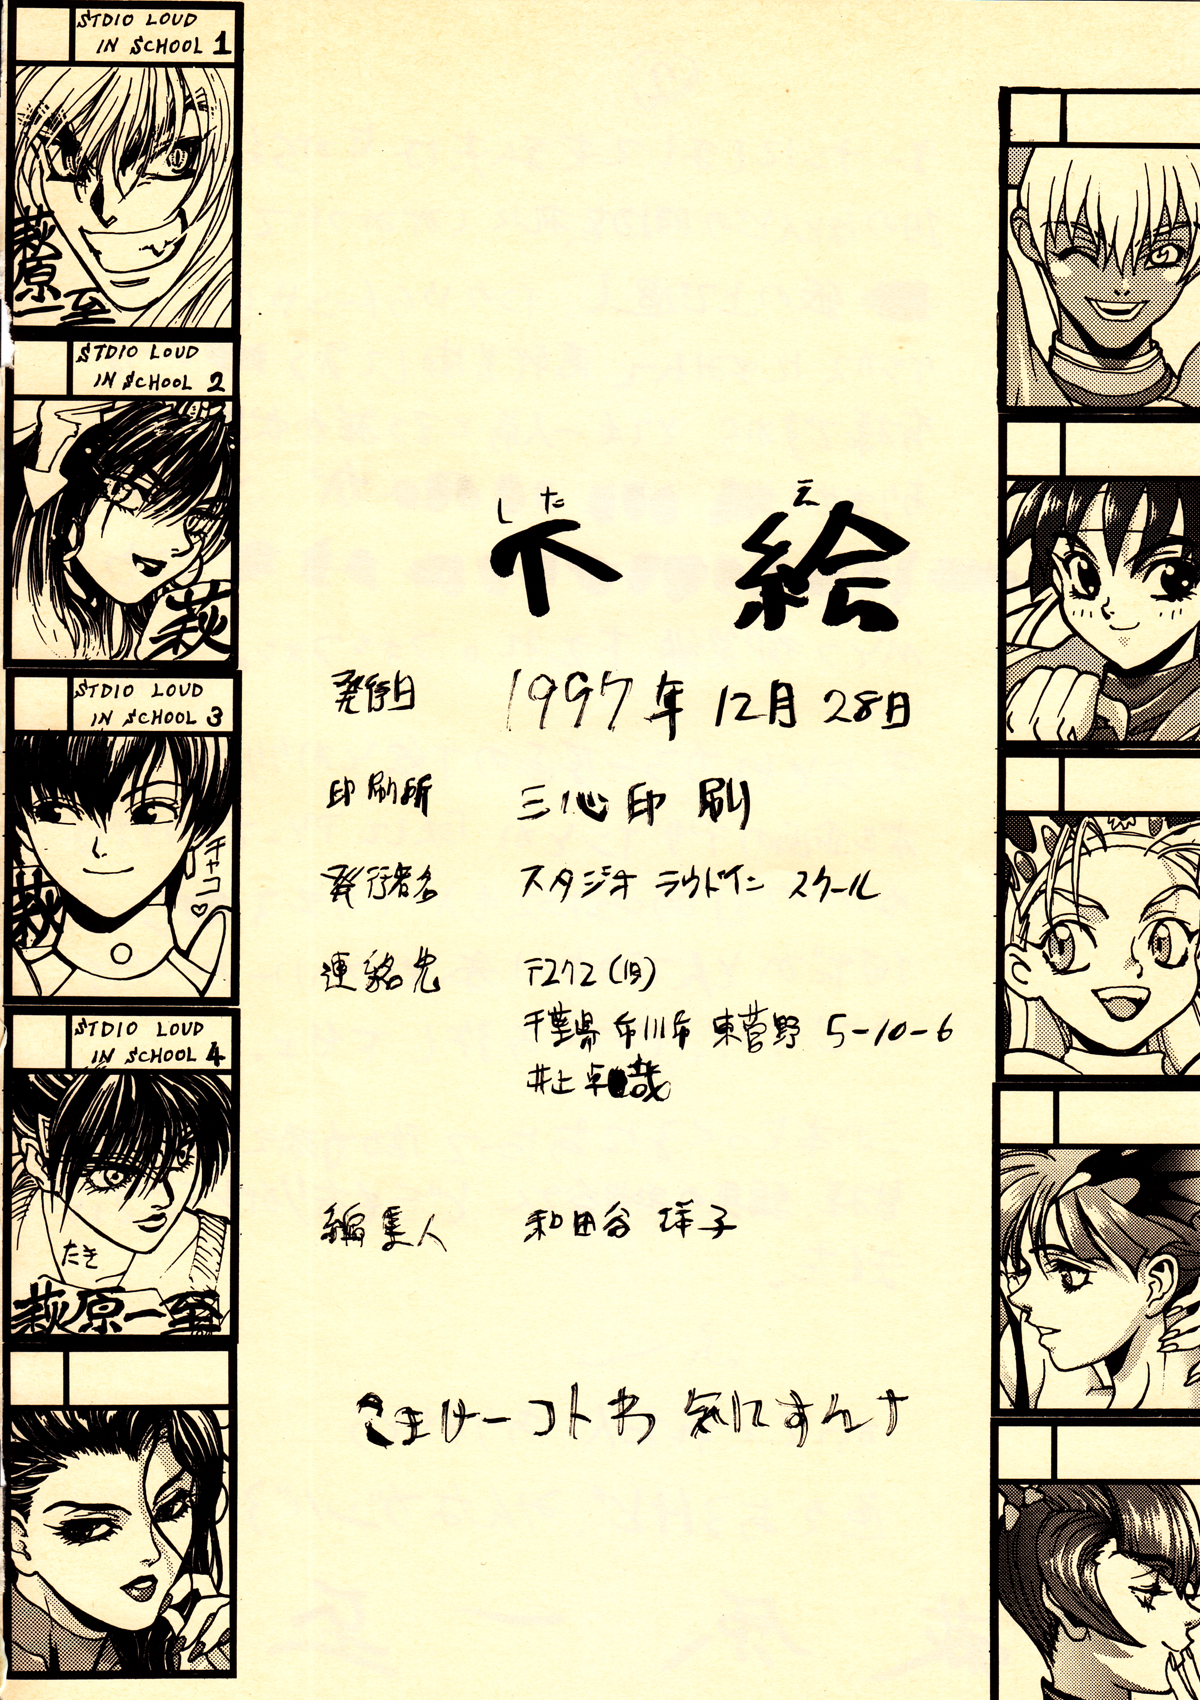 STDIO LOUD
IN SCHOOL 1
萩原一至
STDIO LOUD
IN SCHOOL 2
萩
STDIO LOUD
IN SCHOOL 3
チャコ♡
萩
STDIO LOUD
IN SCHOOL 4
たき
萩原一至
した え
下絵
発行日 1997年12月28日
印刷所 三心印刷
発行者名 スタジオ ラウドイン スクール
連絡先 〒272(旧)
千葉県市川市東菅野 5-10-6
井上卓哉
編集人 和田谷洋子
こまけーコトわ 気にすんナ